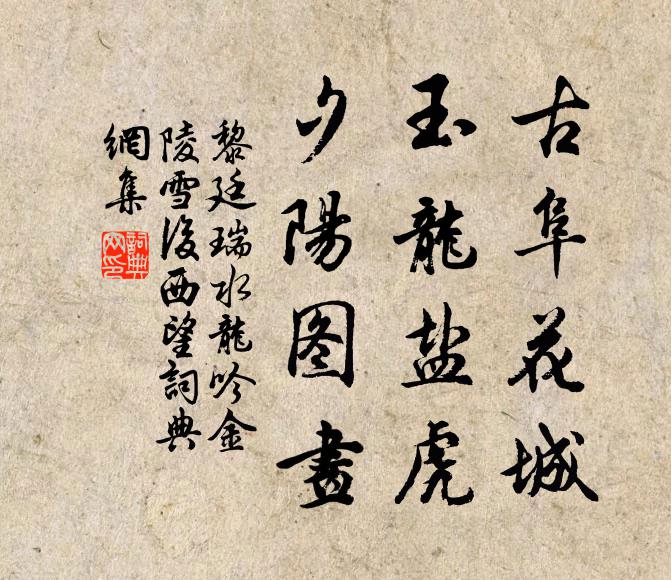 古阜花城
玉龍盐虎
夕陽图畫
黎廷瑞水龍吟金
陵雪後西望詞典
網集
詞典
网印